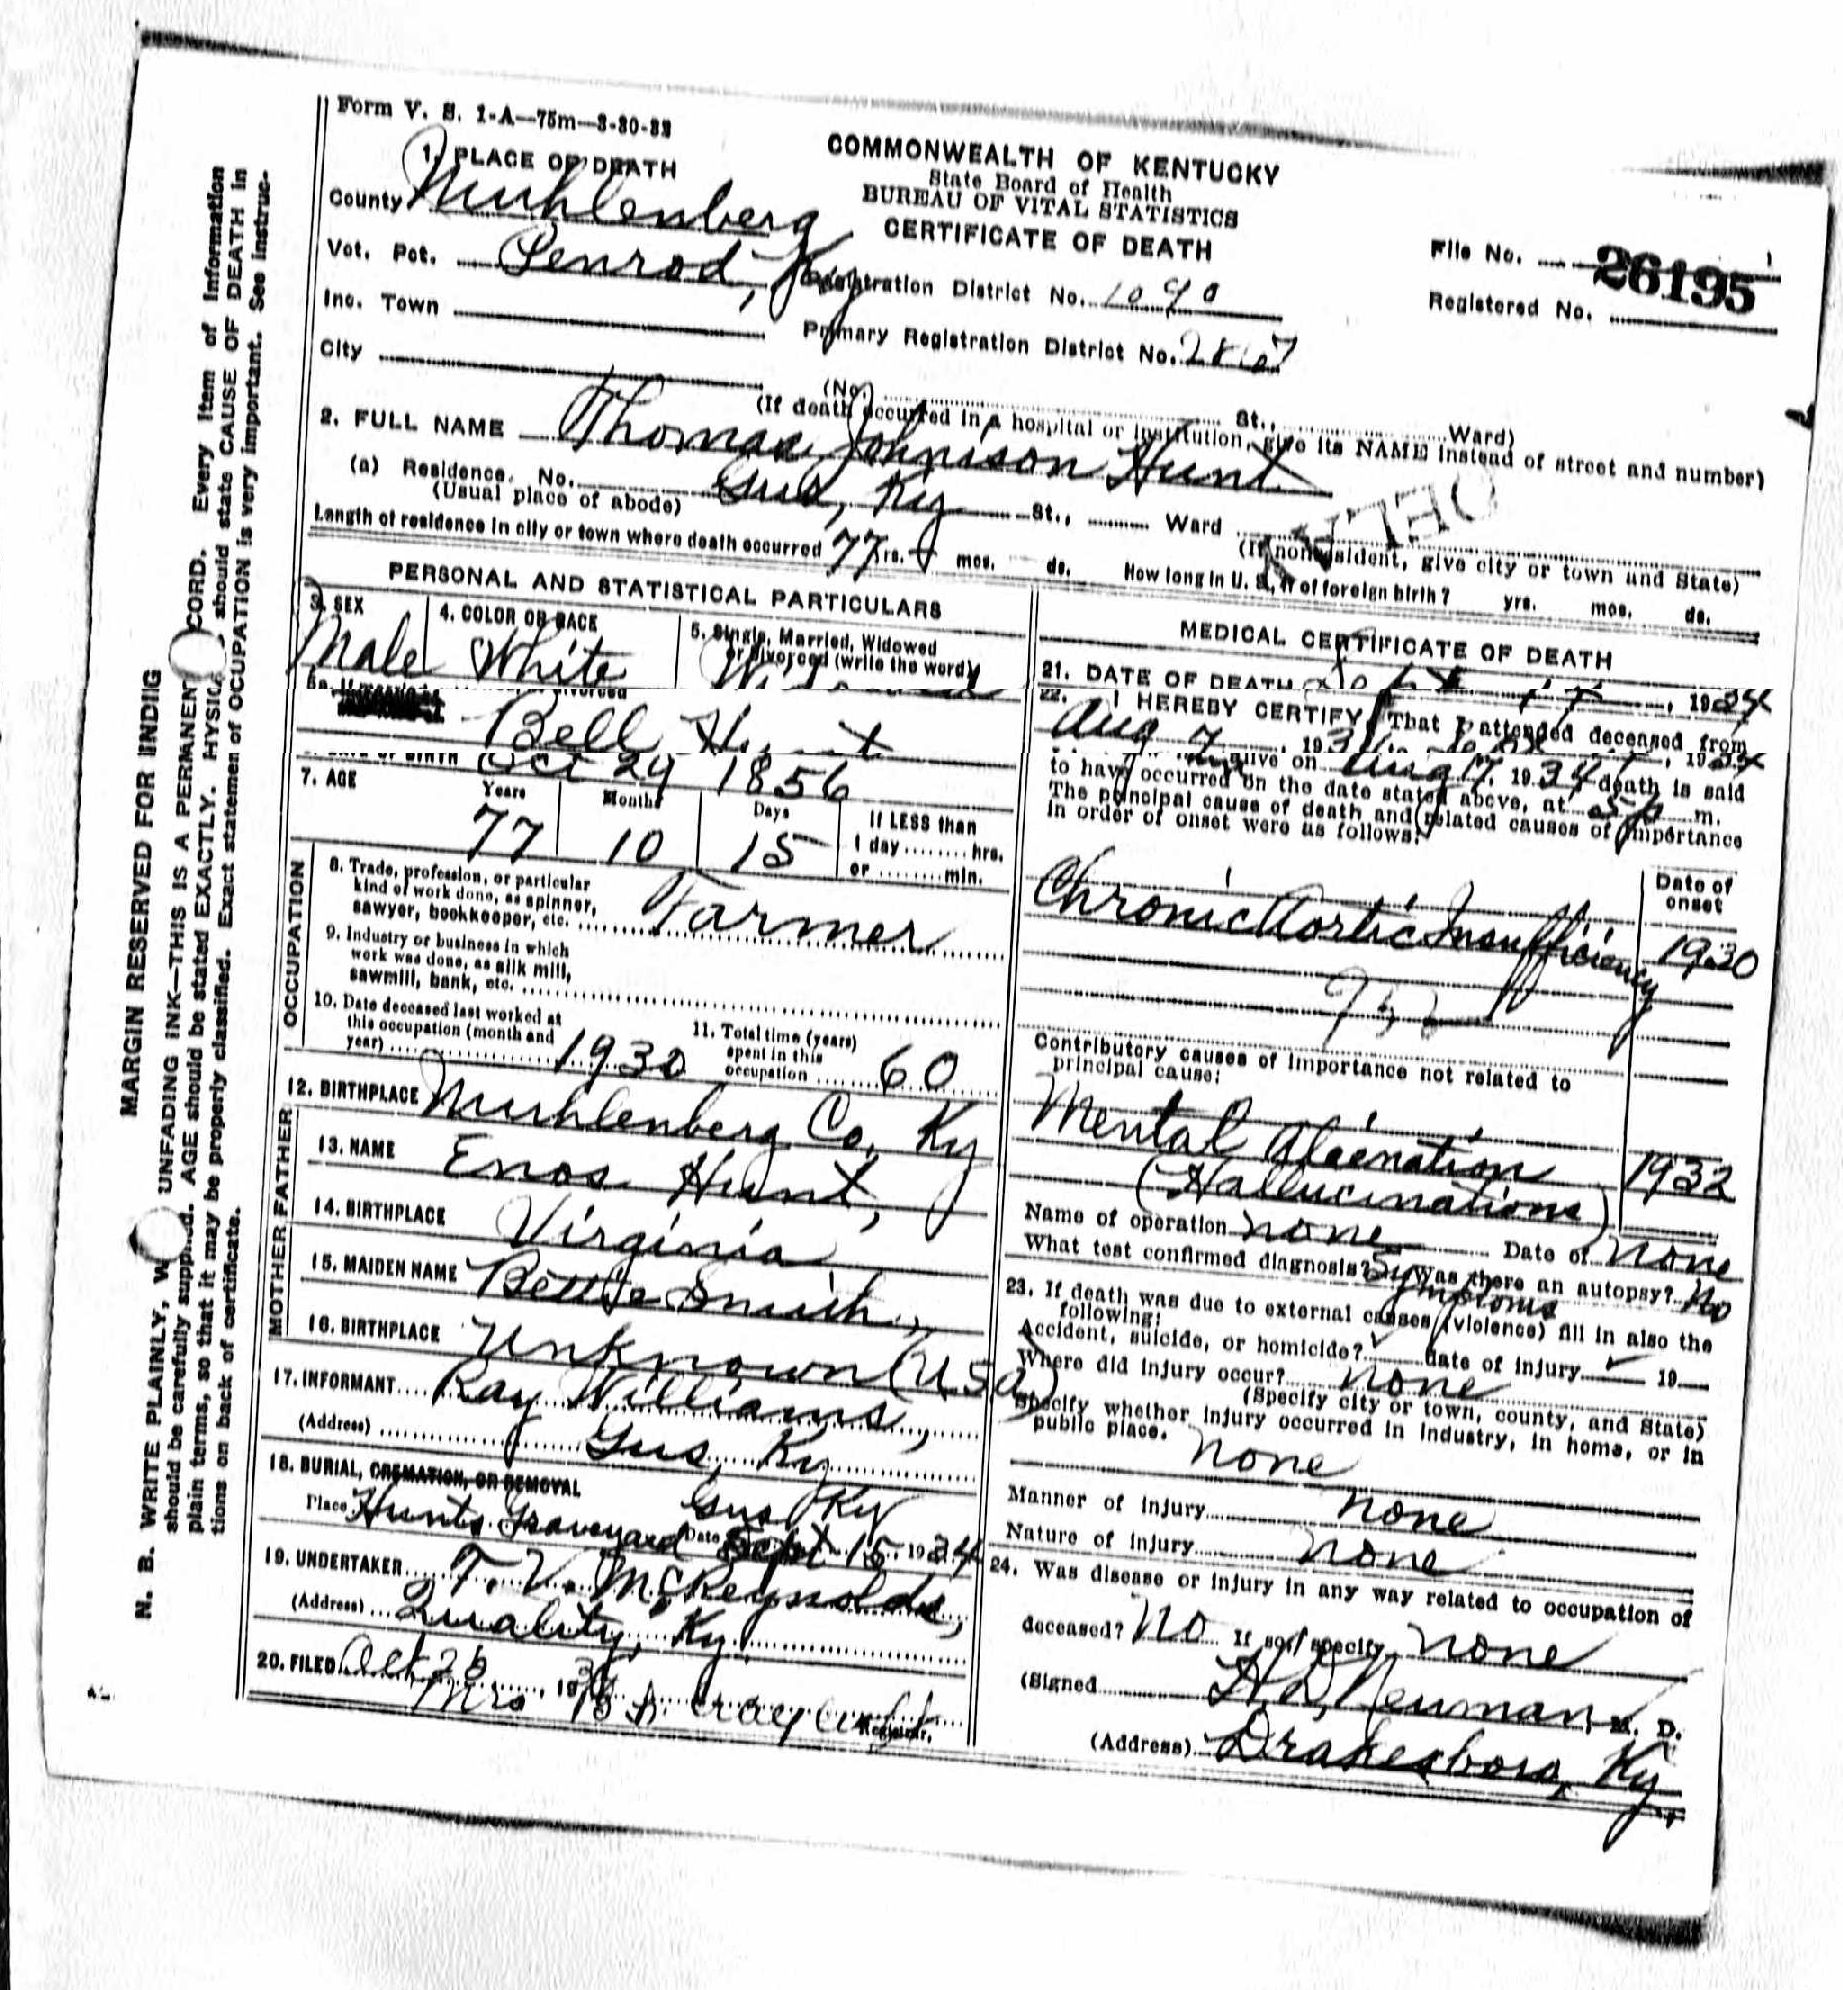 Form V. S. 1-A—75m—3-30-33
COMMONWEALTH OF KENTUCKY
State Board of Health
BUREAU OF VITAL STATISTICS
CERTIFICATE OF DEATH
1. PLACE OF DEATH
County Muhlenberg
Vot. Pct. Penrod, Ky
Inc. Town
City
Registration District No. 1090
Primary Registration District No.
File No. 26195
Registered No.
(No. St., Ward)
(If death occurred in a hospital or institution, give its NAME instead of street and number)
2. FULL NAME Thomas Johnson Hunt
(a) Residence. No. Gus, Ky St., Ward
(Usual place of abode)
(If nonresident, give city or town and State)
Length of residence in city or town where death occurred 77 yrs. mos. ds. How long in U. S., if of foreign birth? yrs. mos. ds.
DELAY
PERSONAL AND STATISTICAL PARTICULARS
3. SEX
Male
4. COLOR OR RACE
White
5. Single, Married, Widowed
or Divorced (write the word)
Bell Hunt
Oct 29 1856
7. AGE
Years Months Days If LESS than
77 10 15 1 day ........ hrs.
or ........ min.
OCCUPATION
8. Trade, profession, or particular
kind of work done, as spinner,
sawyer, bookkeeper, etc. Farmer
9. Industry or business in which
work was done, as silk mill,
sawmill, bank, etc.
10. Date deceased last worked at
this occupation (month and
year) 1930
11. Total time (years)
spent in this
occupation 60
12. BIRTHPLACE Muhlenberg Co, Ky
FATHER
13. NAME Enos Hunt,
14. BIRTHPLACE Virginia
MOTHER
15. MAIDEN NAME Bettie Smith,
16. BIRTHPLACE Unknown (USA)
17. INFORMANT Ray Williams,
(Address) Gus, Ky
18. BURIAL, CREMATION, OR REMOVAL
Gus, Ky
Place Hunts Graveyard Date Sept 15, 1934
19. UNDERTAKER T. V. McReynolds,
(Address) Quality, Ky.
20. FILED Oct 26, 1934
Registrar.
MEDICAL CERTIFICATE OF DEATH
21. DATE OF DEATH , 1934
22. I HEREBY CERTIFY, That I attended deceased from
Aug 7
alive on Aug 17, 1934 death is said
to have occurred on the date stated above, at 5 p m.
The principal cause of death and related causes of importance
in order of onset were as follows:
Date of
onset
Chronic Aortic Insufficiency 1930
Contributory causes of importance not related to
principal cause:
Mental Alienation 1932
(Hallucinations)
Name of operation none Date of none
What test confirmed diagnosis? Symptoms Was there an autopsy? No
23. If death was due to external causes (violence) fill in also the
following:
Accident, suicide, or homicide? date of injury 19
Where did injury occur? none
(Specify city or town, county, and State)
Specify whether injury occurred in industry, in home, or in
public place.
none
Manner of injury none
Nature of injury none
24. Was disease or injury in any way related to occupation of
deceased? No If so, specify none
(Signed H. D. Neuman, M. D.
(Address) Drakesboro, Ky
MARGIN RESERVED FOR
N. B. WRITE PLAINLY, UNFADING INK—THIS IS A PERMANENT CORD. Every item of information
should be carefully supplied. AGE should be stated EXACTLY. should state CAUSE OF DEATH in
plain terms, so that it may be properly classified. Exact statement of OCCUPATION is very important. See instruc-
tions on back of certificate.